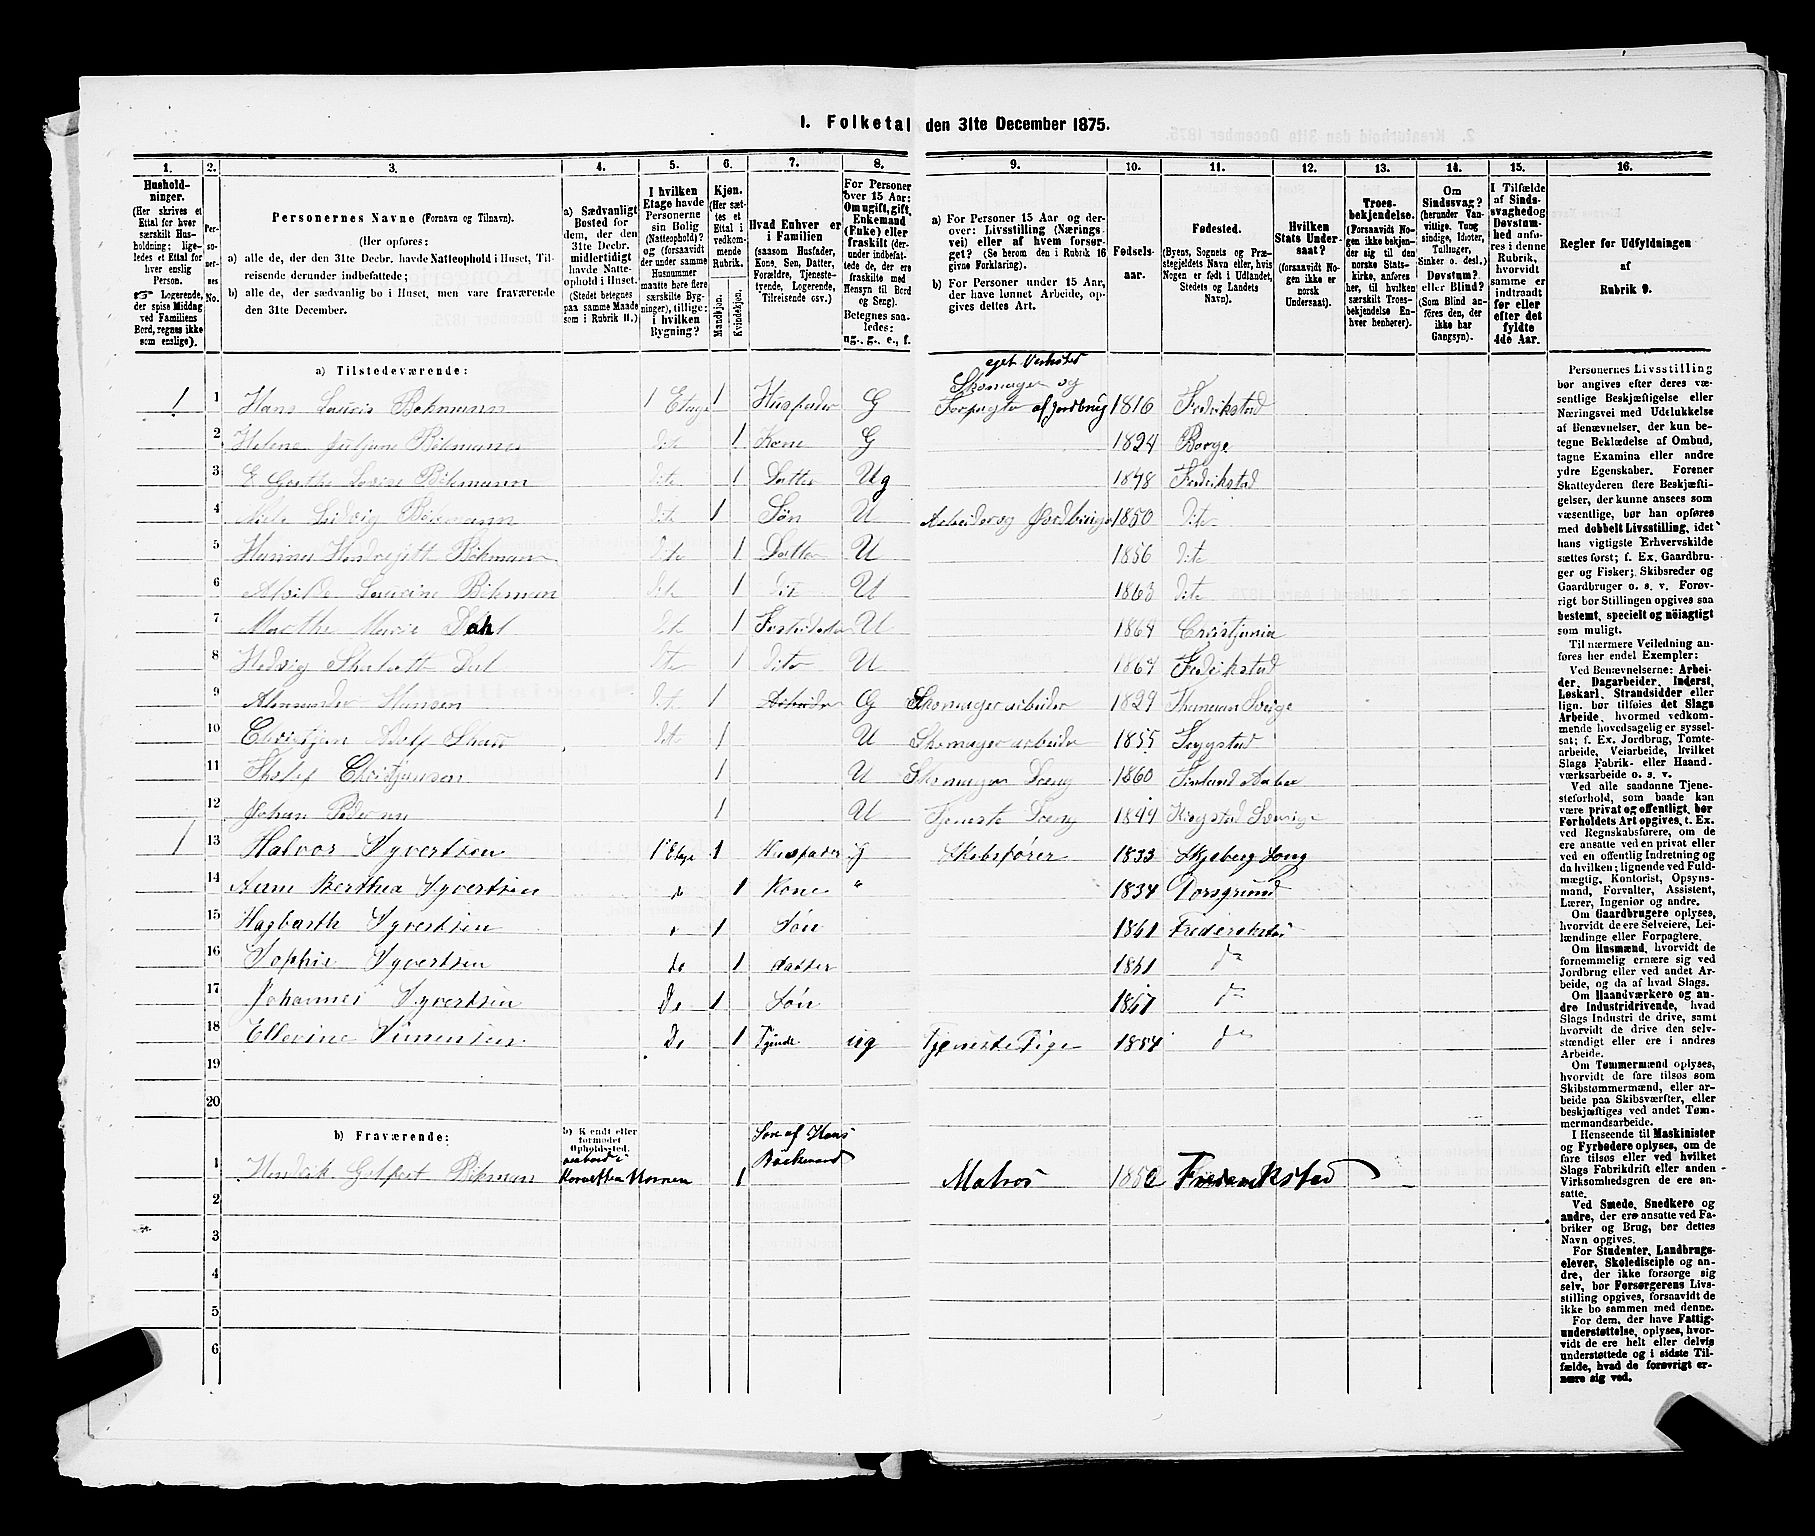 1. Folketal den 31te December 1875.
1. 2. 3. 4. 5. 6. 7. 8. 9. 10. 11. 12. 13. 14. 15. 16.
Hushold-
ninger.
(Her skrives et
Ettal for hver
særskilt Hus-
holdning; lige-
ledes et Ettal for
hver enslig
Person.
☞ Logerende,
der spise Middag
ved Familiens
Bord, regnes ikke
som enslige).
Per-
so-
ner-
nes
No.
Personernes Navne (Fornavn og Tilnavn).
(Her opføres:
a) alle de, der den 31te Decbr. havde Natteophold i Huset, Til-
reisende derunder indbefattede;
b) alle de, der sædvanlig bo i Huset, men vare fraværende
den 31te December.
a) Sædvanligt
Bosted for
dem, der den
31te Decbr.
midlertidigt
havde Natte-
ophold i Huset.
(Stedet betegnes
paa samme Maade
som i Rubrik 11.)
I hvilken
Etage havde
Personerne
sin Bolig
(Natteophold)?
og (forsaavidt
der under samme
Husnummer
maatte høre flere
særskilte Byg-
ninger), tillige:
i hvilken
Bygning?
Kjøn.
(Her sæt-
tes et
Ettal i
vedkom-
mende
Rubrik.
Mandkjøn.
Kvindekjøn.
Hvad Enhver er
i Familien
(saasom Husfader,
Kone, Søn, Datter,
Forældre, Tjeneste-
tyende, Logerende,
Tilreisende osv.)
For Personer
over 15 Aar:
Om ugift, gift,
Enkemand
(Enke) eller
fraskilt (der-
under indbefat-
tede de, der ere
fraskilte med
Hensyn til Bord
og Seng).
Betegnes saa-
ledes:
ug., g., e., f.
a) For Personer 15 Aar og der-
over: Livsstilling (Nærings-
vei) eller af hvem forsør-
get? (Se herom den i Rubrik 16
givne Forklaring).
b) For Personer under 15 Aar,
der have lønnet Arbeide, op-
gives dettes Art.
Fødsels-
aar.
Fødested.
(Byens, Sognets og Præ-
stegjeldets Navn eller, hvis
Nogen er født i Udlandet,
Stedets og Landets
Navn).
Hvilken
Stats Under-
saat?
(forsaavidt No-
gen ikke er
norsk
Undersaat).
Troes-
bekjendelse.
(Forsaavidt No-
gen ikke beken-
der sig til den
norske Stats-
kirke, anføres
her, til hvilken
særskilt Troes-
bekjendelse En-
hver henhører).
Om
Sindssvag?
(herunder Van-
vittige, Tung-
sindige, Idioter,
Tullinger,
Sinker o. desl.)
Døvstum?
eller Blind?
(Som Blind an-
føres den, der
ikke har
Gangsyn).
I Tilfælde
af Sinds-
svaghed og
Døvstum-
hed anfø-
res i denne
Rubrik,
hvorvidt
samme er
indtraadt
før eller
efter det
fyldte
4de Aar.
Regler for Udfyldningen
af
Rubrik 9.
a) Tilstedeværende:
eget Verksted
Skomager og
1 1 Hans Lauris Bøhmann 1 Etage 1 Husfader G Forpagter af Jordbrug 1816 Fredrikstad
2 Helene Juljane Bøhmann dito 1 Kone G 1824 Borge
3 E Grethe Lovise Bøhmann dito 1 Datter Ug 1848 Fredrikstad
4 Niels Ludvig Bøhmann dito 1 Søn U 1850 dito
5 Hanna Bøhman dito 1 Datter U 1856 dito
6 Alvilde Laurine Bøhman dito 1 dito U 1863 dito
7 Marthe Marie Dahl dito 1 U 1864 Cristjania
8 Hedvig Dal dito 1 dito U 1864 Fredrikstad
9 Hansen dito 1 Arbeider G Skomagerarbeider 1829
10 Christjan Adolf dito 1 U Skomagerarbeider 1855
11 Christjansen 1 U Skomager Dreng 1860
12 Johan Pedersen 1 U Tjeneste Dreng
1 13 Halvor Syvertsen 1 Etage 1 Husfader g 1833 Skjeberg Sogn
14 Anne Berthea Syvertsen do 1 Kone " 1834 Porsgrund
15 Hagbarth Syvertsen 1 Søn 1861
16 Sophie Syvertsen do 1 Datter 1861 do
17 Johannes Syvertsen Do 1 Søn 1867 do
18 Ellevine Simensen Do 1 Tyende ug Tjeneste Pige 1854 do
19
20
b) Fraværende:
b) Kjendt eller
formodet
Opholdssted.
Søn af Hans
Bøckmand
ombord i
1 Hendrik Bøhman Korvetten Nornen 1 Matros Frederikstad
2
3
4
5
6
Personernes Livsstilling
bør angives efter deres væ-
sentlige Beskjæftigelse eller
Næringsvei med Udelukkelse
af Benævnelser, der kun be-
tegne Beklædelse af Ombud,
tagne Examina eller andre
ydre Egenskaber. Forener
Skatteyderen flere Beskjæfti-
gelser, der kunne ansees som
væsentlige, bør han opføres
med dobbelt Livsstilling, idet
hans vigtigste Erhvervskilde
sættes først; f. Ex. Gaardbru-
ger og Fisker; Skibsreder og
Gaardbruger o. s. v. Forøv-
rigt bør Stillingen opgives saa
bestemt, specielt og nöiagtigt
som muligt.
Til nærmere Veiledning an-
føres her endel Exempler:
Ved Benævnelserne: Arbei-
der, Dagarbeider, Inderst,
Løskarl, Strandsidder eller
lign. bør tilføies det Slags
Arbeide, hvormed vedkom-
mende hovedsagelig er syssel-
sat; f. Ex. Jordbrug, Tomte-
arbeide, Veiarbeide, hvilket
Slags Fabrik- eller Haand-
værksarbeide o. s. v.
Ved alle saadanne Tjene-
steforhold, som baade kan
være privat og offentligt, bør
Forholdets Art opgives, f. Ex.
ved Regnskabsførere, om de
ere ansatte ved en privat eller
ved en offentlig Indretning og
da hvilken; lignende ved Fuld-
mægtig, Kontorist, Opsyns-
mand, Forvalter, Assistent,
Lærer, Ingeniør og andre.
Om Gaardbrugere oplyses,
hvorvidt de ere Selveiere, Lei-
lændinge eller Forpagtere.
Om Husmænd, hvorvidt de
fornemmelig ernære sig ved
Jordbrug eller ved andet Ar-
beide, og da af hvad Slags.
Om Haandværkere og an-
dre Industridrivende, hvad
Slags Industri de drive, samt
hvorvidt de drive den selv-
stændigt eller ere i andres
Arbeide.
Om Tømmermænd oplyses,
hvorvidt de fare tilsøs som
Skibstømmermænd, eller ar-
beide paa Skibsværfter, eller
beskjæftiges ved andet Tøm-
mermandsarbeide.
I Henseende til Maskinister
og Fyrbødere oplyses, om de
fare tilsøs eller ved hvilket
Slags Fabrikdrift eller anden
Virksomhedsgren de ere an-
satte.
Ved Smede, Snedkere og
andre, der ere ansatte ved Fa-
briker og Brug, bør dettes
Navn opgives.
For Studenter, Landbrugs-
elever, Skoledisciple og an-
dre, der ikke forsørge sig
selv, bør Forsørgerens Livs-
stilling opgives, forsaavidt de
ikke bo sammen med denne.
For dem, der have Fattig-
understøttelse, oplyses, hvor-
vidt de ere helt eller delvis
understøttede og i sidste Til-
fælde, hvad de forøvrigt er-
nære sig ved.